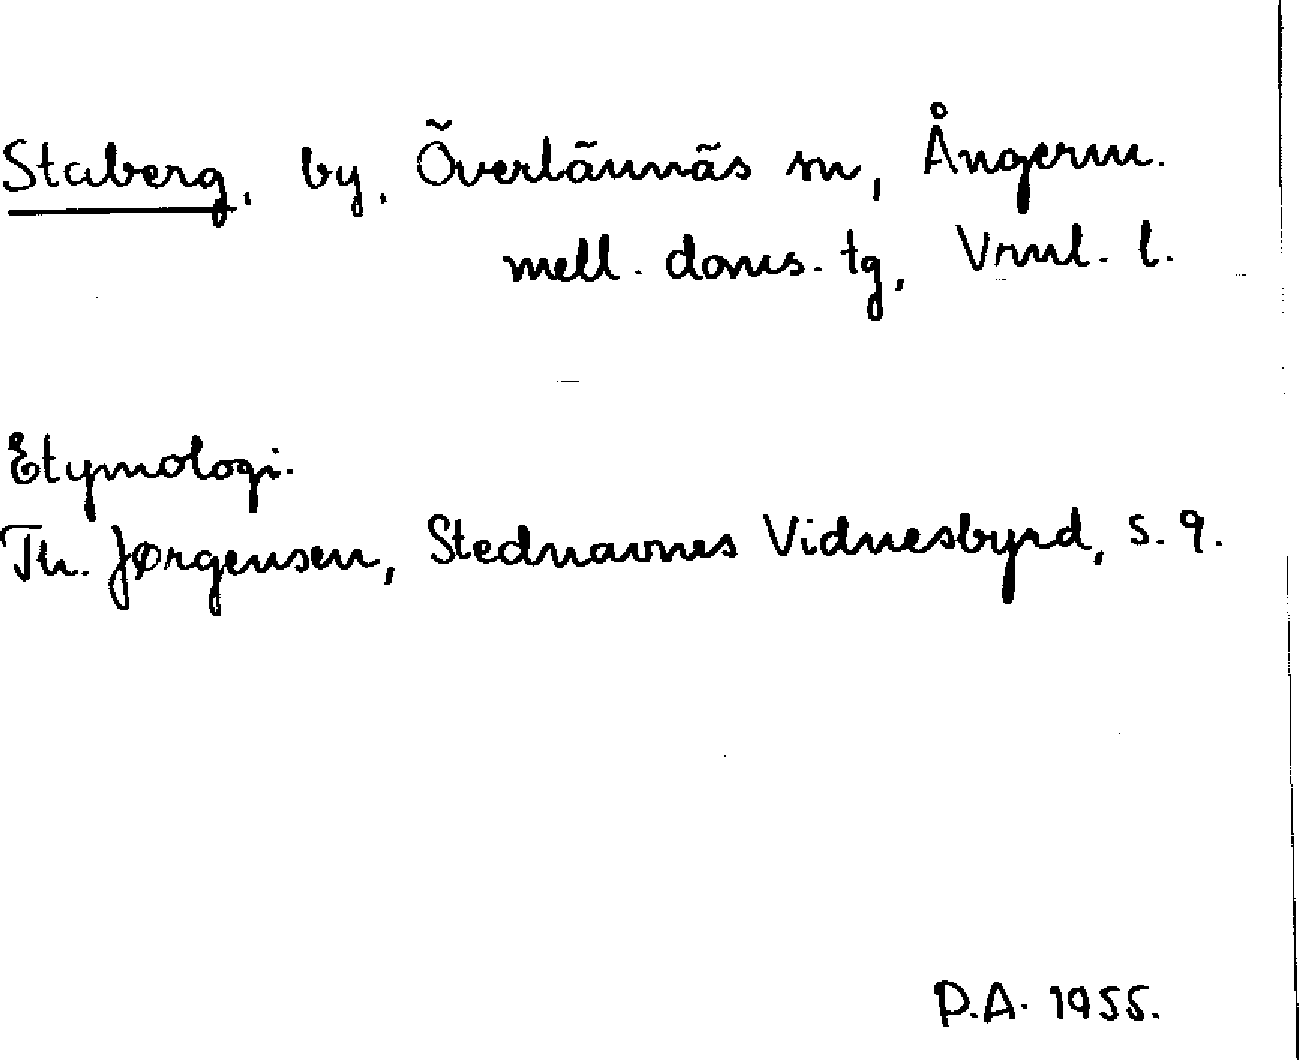 Staberg, by, Överlännäs sn, Ångerm.
mell. doms. tg, Vrnl. l.
Etymologi.
Th. Jørgensen, Stednavnes Vidnesbyrd, s. 9.
P.A. 1955.